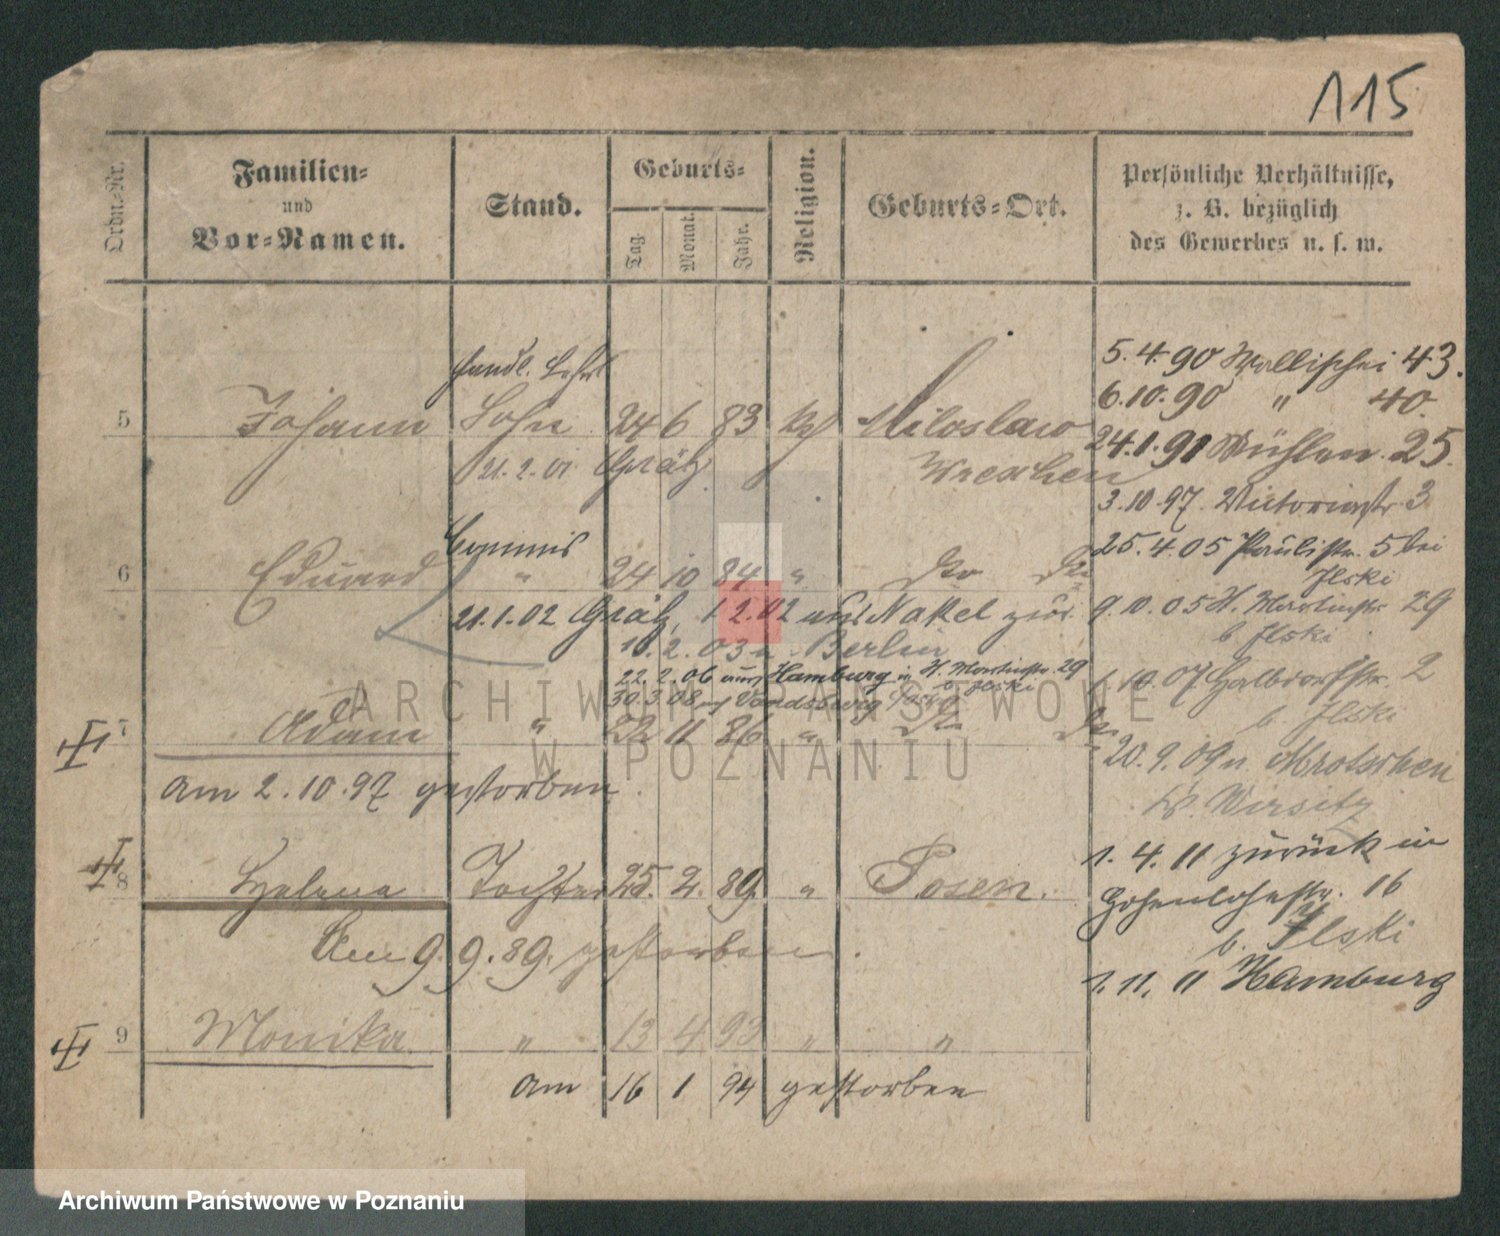 115
Ordn.-Nr.
Familien-
und
Vor-Namen.
Stand.
Geburts-
Tag.
Monat.
Jahr.
Religion.
Geburts-Ort.
Persönliche Verhältnisse,
z. B. bezüglich
des Gewerbes u. s. w.
Handl. Lehrl.
5 Johann Sohn 24 6 83 Miloslaw
21.2.01 Grätz Wreschen
Commis
6 Eduard " 24 10 84 " do do
21.1.02 Grätz, 1 2.02 aus Nakel zur.
10.2.03 n. Berlin
22.2.06 aus Hamburg n. H. Martinstr. 29
b. Ilski
30.3.08 n. Vandsburg
7 Adam " 22 11 86 " do do
am 2.10.97 gestorben.
8 Helena Tochter 25. 2. 89. " Posen.
Am 9.9.89. gestorben.
9 Monika " 13 4 93 " "
am 16 1 94 gestorben
5.4.90 Wallischei 43.
6.10.90 " 40.
24.1.91 Mühlen. 25.
3.10.97. Victoriastr. 3
25.4.05 Paulistr. 5 bei
Ilski
9.10.05 H. Martinstr 29
b Ilski
1.10.07 Halbdorfstr. 2
b. Ilski
20.9.09 n. Mrotschen
Kr. Wirsitz
1.4.11 zurück in
Hohenlohestr. 16
b. Ilski
1.11.11 Hamburg
ARCHIWUM PAŃSTWOWE
W POZNANIU
Archiwum Państwowe w Poznaniu